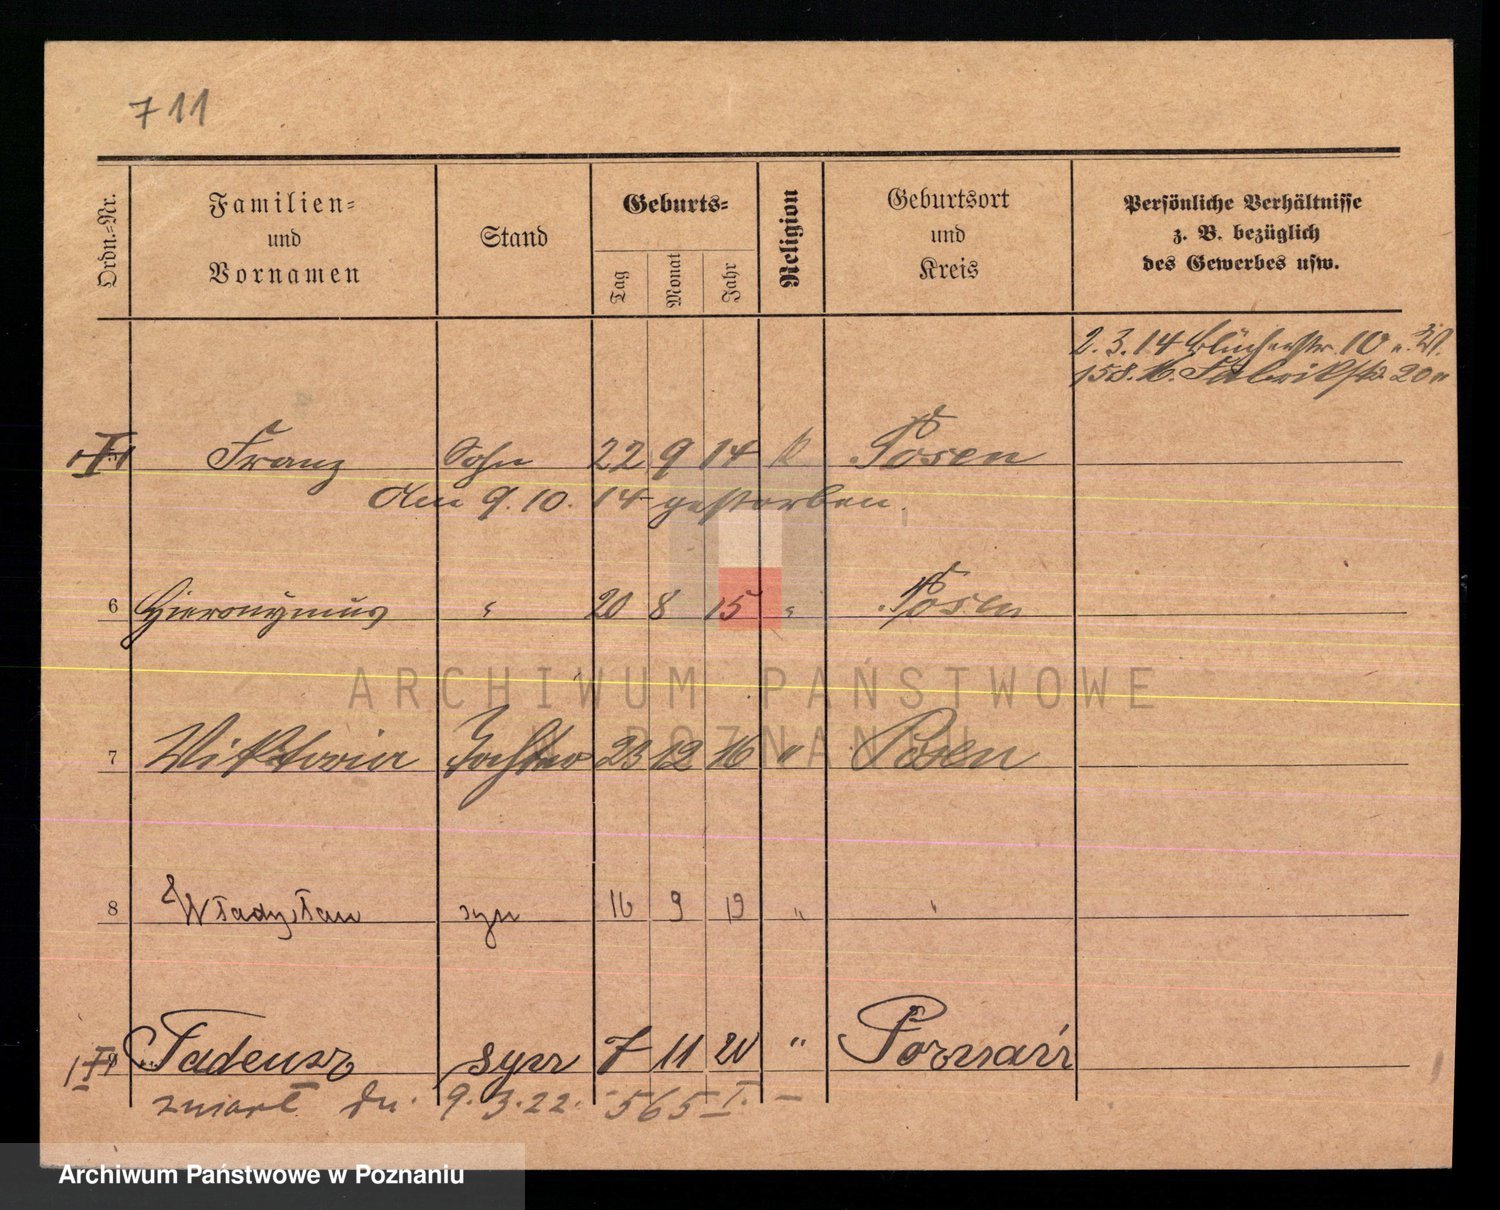 711
Ordn.-Nr.
Familien- und Vornamen
Stand
Geburts-
Tag Monat Jahr
Religion
Geburtsort und Kreis
Persönliche Verhältnisse
z. B. bezüglich
des Gewerbes usw.
2. 3. 14 Blücherstr. 10
Fabrikstr. 20
Franz Sohn 22 9 14 k Posen
Am 9. 10. 14 gestorben.
6 Hieronymus " 20 8 15 " Posen
ARCHIWUM PAŃSTWOWE
W POZNANIU
7 Viktoria Tochter 23 12 16 " Posen
8 Władysław syn 16 9 19 " "
Tadeusz syn 7 11 20 " Poznań
zmarł dn. 9. 3. 22. - 565 I. -
Archiwum Państwowe w Poznaniu